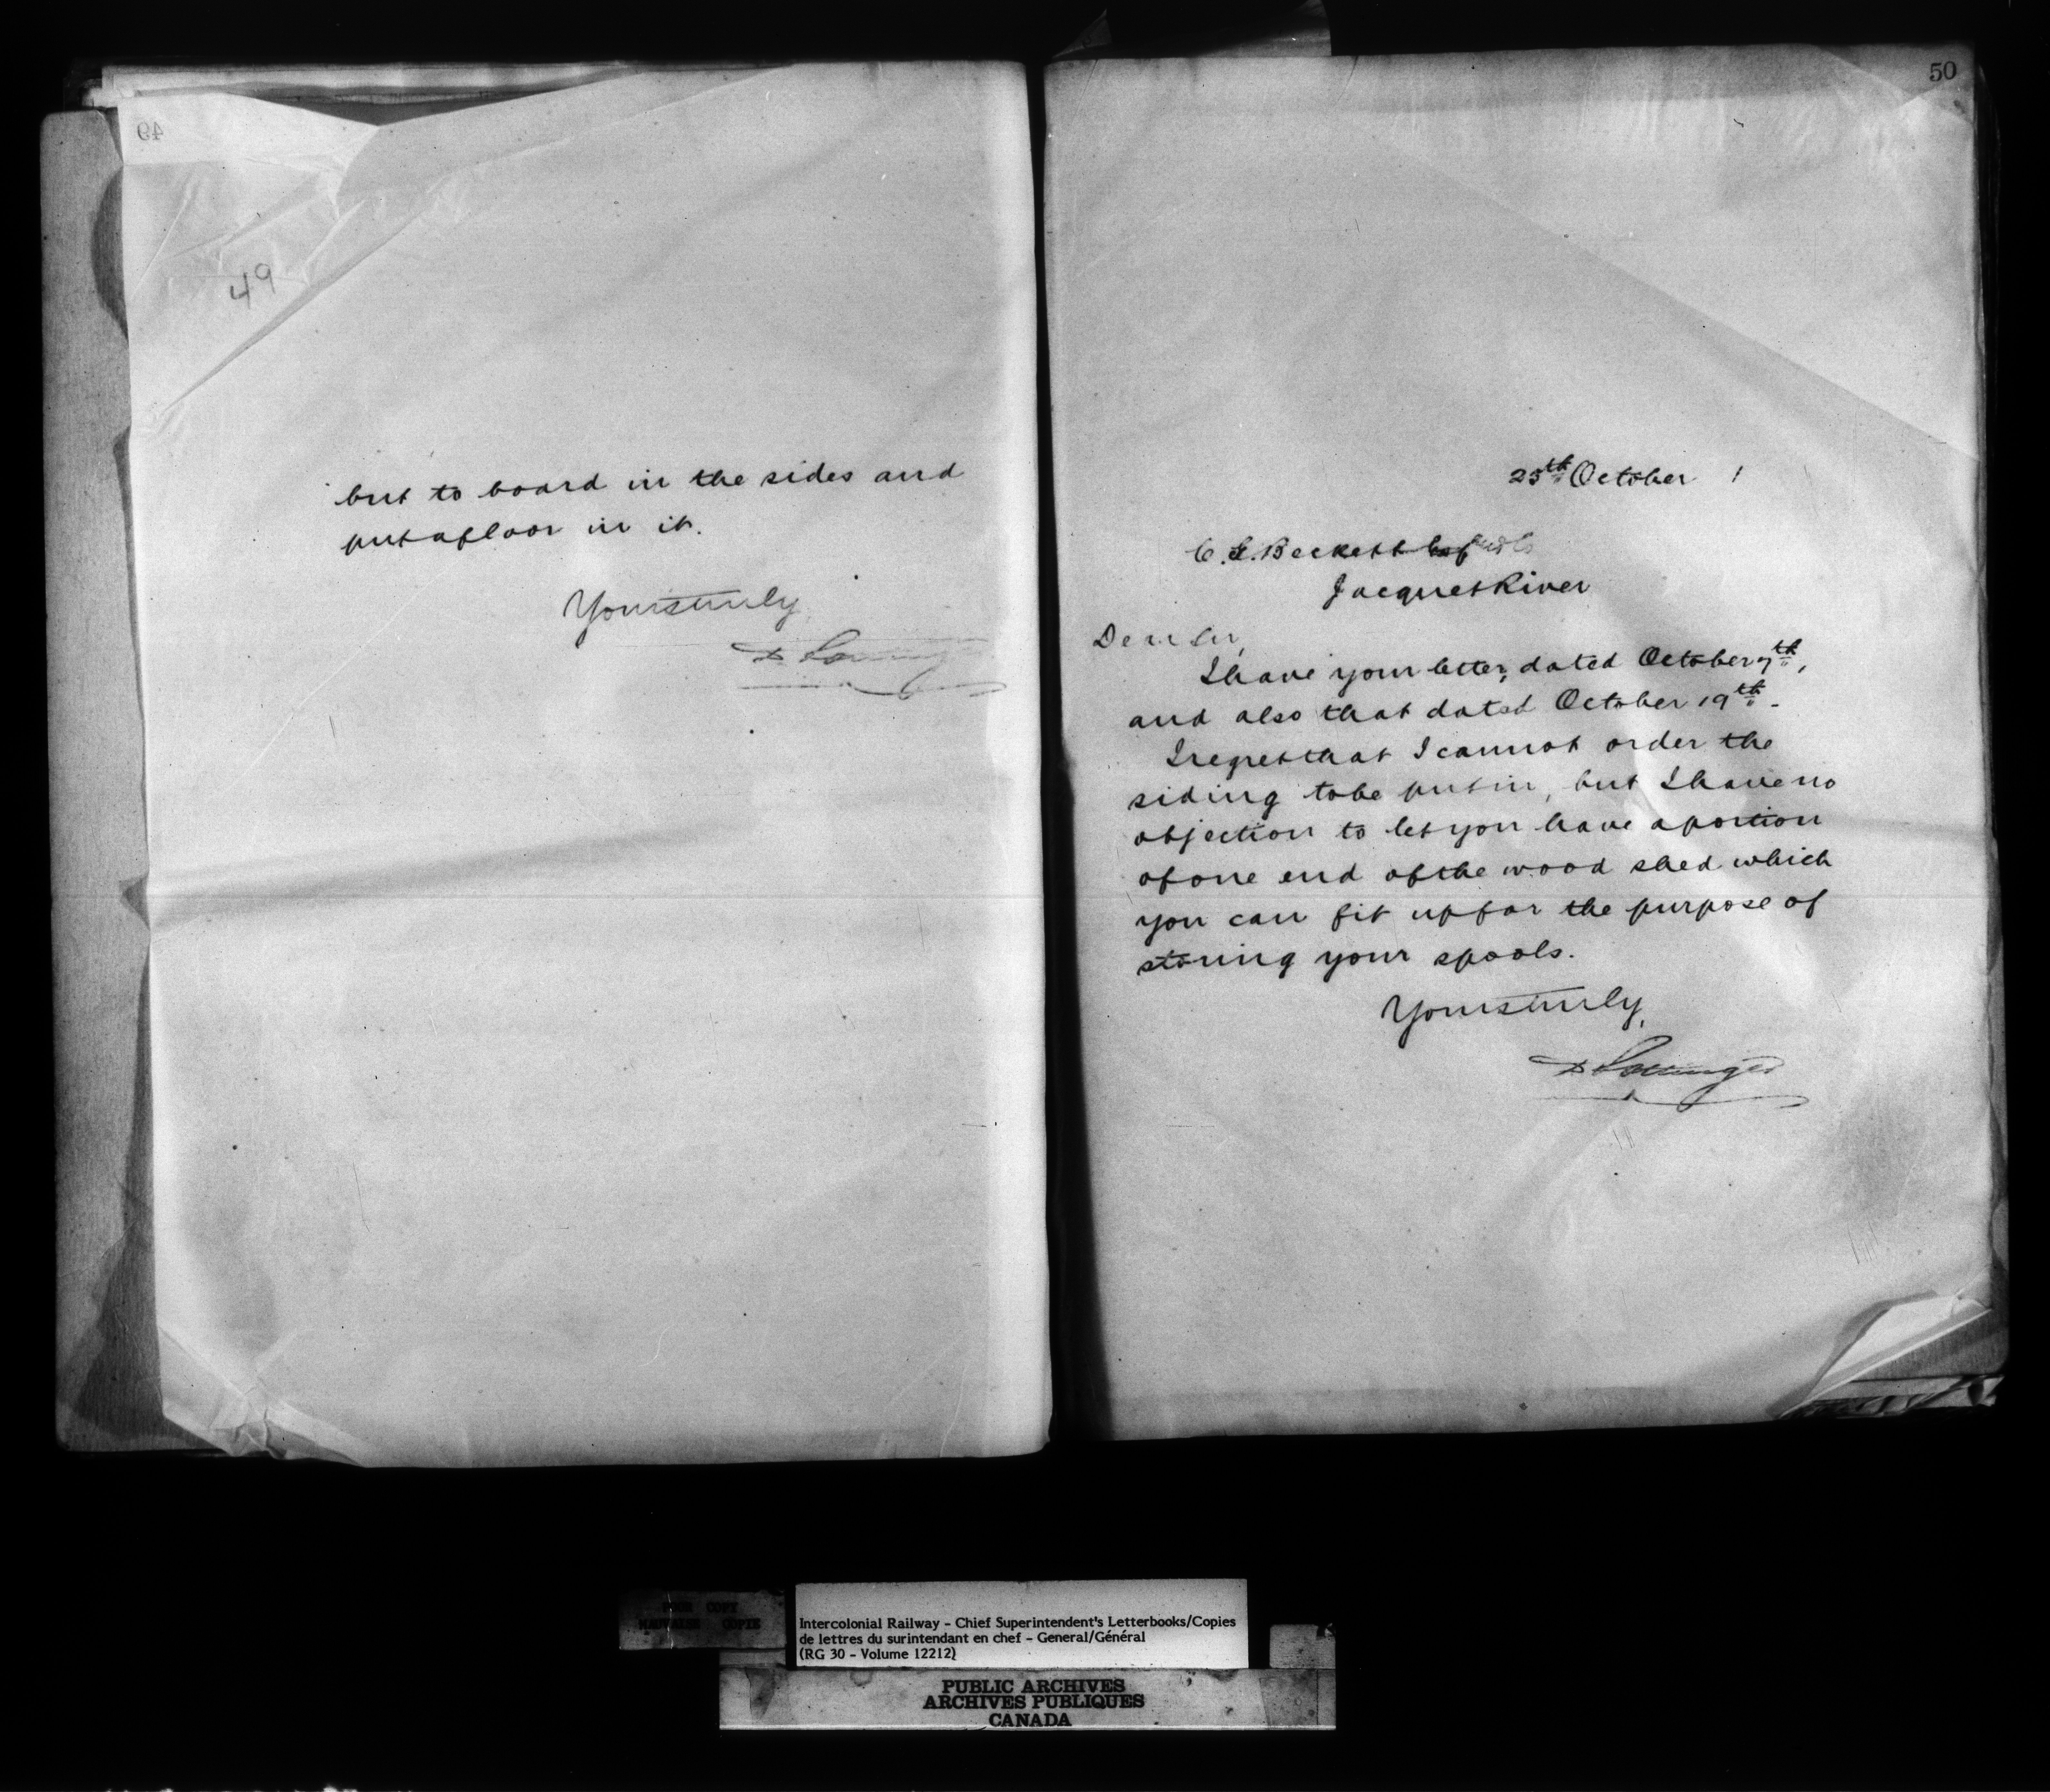 49
49
but to board in the sides and
put a floor in it.
Yours truly
D Pottinger
50
25th October 1
C. E. Beckett
Jacquet River
Dear Sir,
I have your letter, dated October 7th,
and also that dated October 19th.
I regret that I cannot order the
siding to be put in, but I have no
objection to let you have a portion
of one end of the wood shed which
you can fit up for the purpose of
storing your spools.
Yours truly,
D Pottinger
POOR COPY
MAUVAISE COPIE
Intercolonial Railway - Chief Superintendent's Letterbooks/Copies
de lettres du surintendant en chef - General/Général
(RG 30 - Volume 12212)
PUBLIC ARCHIVES
ARCHIVES PUBLIQUES
CANADA